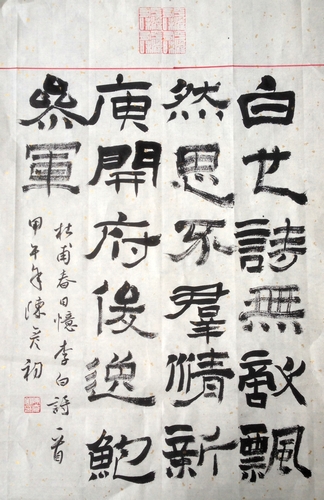 白也詩無敵飄
然思不羣清新
庾開府俊逸鮑
參軍
杜甫春日憶李白詩一首
甲午年陳初